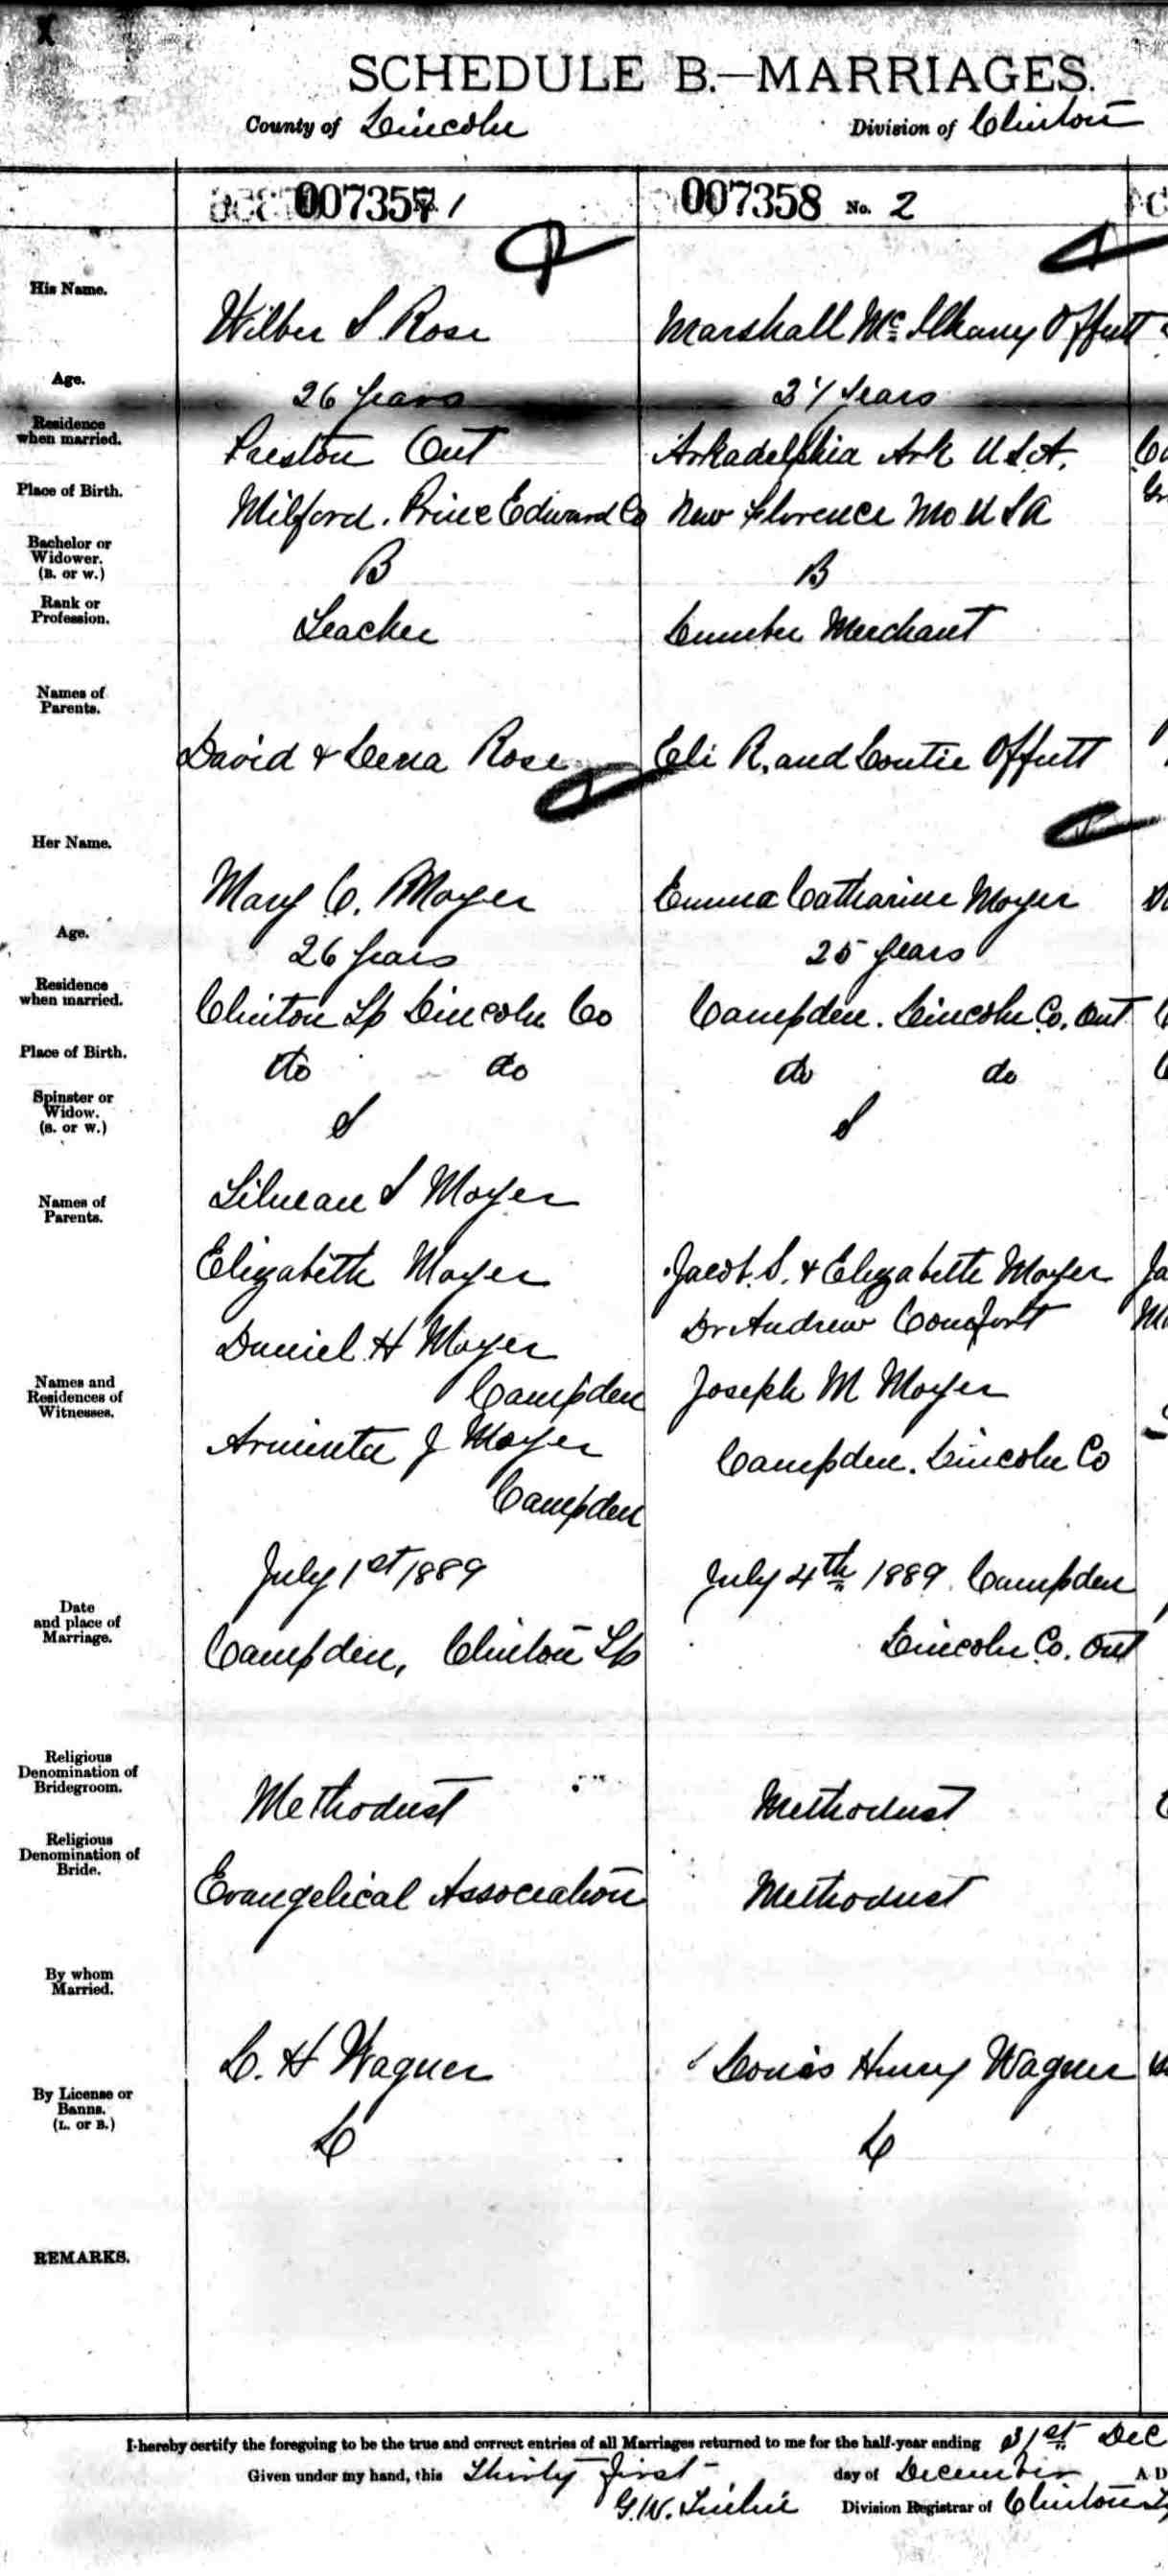 SCHEDULE B.—MARRIAGES.
County of Lincoln Division of Clinton
007357 1
007358 No. 2
His Name.
Wilber S Rose
Marshall Mc Ilhany Offutt
Age.
26 years
31 years
Residence when married.
Preston Ont
Arkadelphia Ark U.S.A.
Place of Birth.
Milford. Prince Edward Co
New Florence Mo U S A
Bachelor or Widower. (B. or W.)
B
B
Rank or Profession.
Teacher
Lumber Merchant
Names of Parents.
David & Lena Rose
Eli R. and Loutie Offutt
Her Name.
Mary C. Moyer
Emma Catharine Moyer
Age.
26 years
25 years
Residence when married.
Clinton Tp Lincoln Co
Campden. Lincoln Co. Ont
Place of Birth.
do do
do do
Spinster or Widow. (S. or W.)
S
S
Names of Parents.
Tilman S Moyer
Elizabeth Moyer
Jacob. S. & Elizabeth Moyer
Names and Residences of Witnesses.
Daniel H Moyer
Campden
Arminta J Moyer
Campden
Dr Andrew Comfort
Joseph M Moyer
Campden. Lincoln Co
Date and place of Marriage.
July 1st 1889
Campden, Clinton Tp
July 4th 1889. Campden
Lincoln Co. Ont
Religious Denomination of Bridegroom.
Methodist
Methodist
Religious Denomination of Bride.
Evangelical Association
Methodist
By whom Married.
L. H Wagner
Louis Henry Wagner
By License or Banns. (L. or B.)
L
L
REMARKS.
I hereby certify the foregoing to be the true and correct entries of all Marriages returned to me for the half-year ending 31st Dec
Given under my hand, this Thirty first day of December A D
G.W. Division Registrar of Clinton